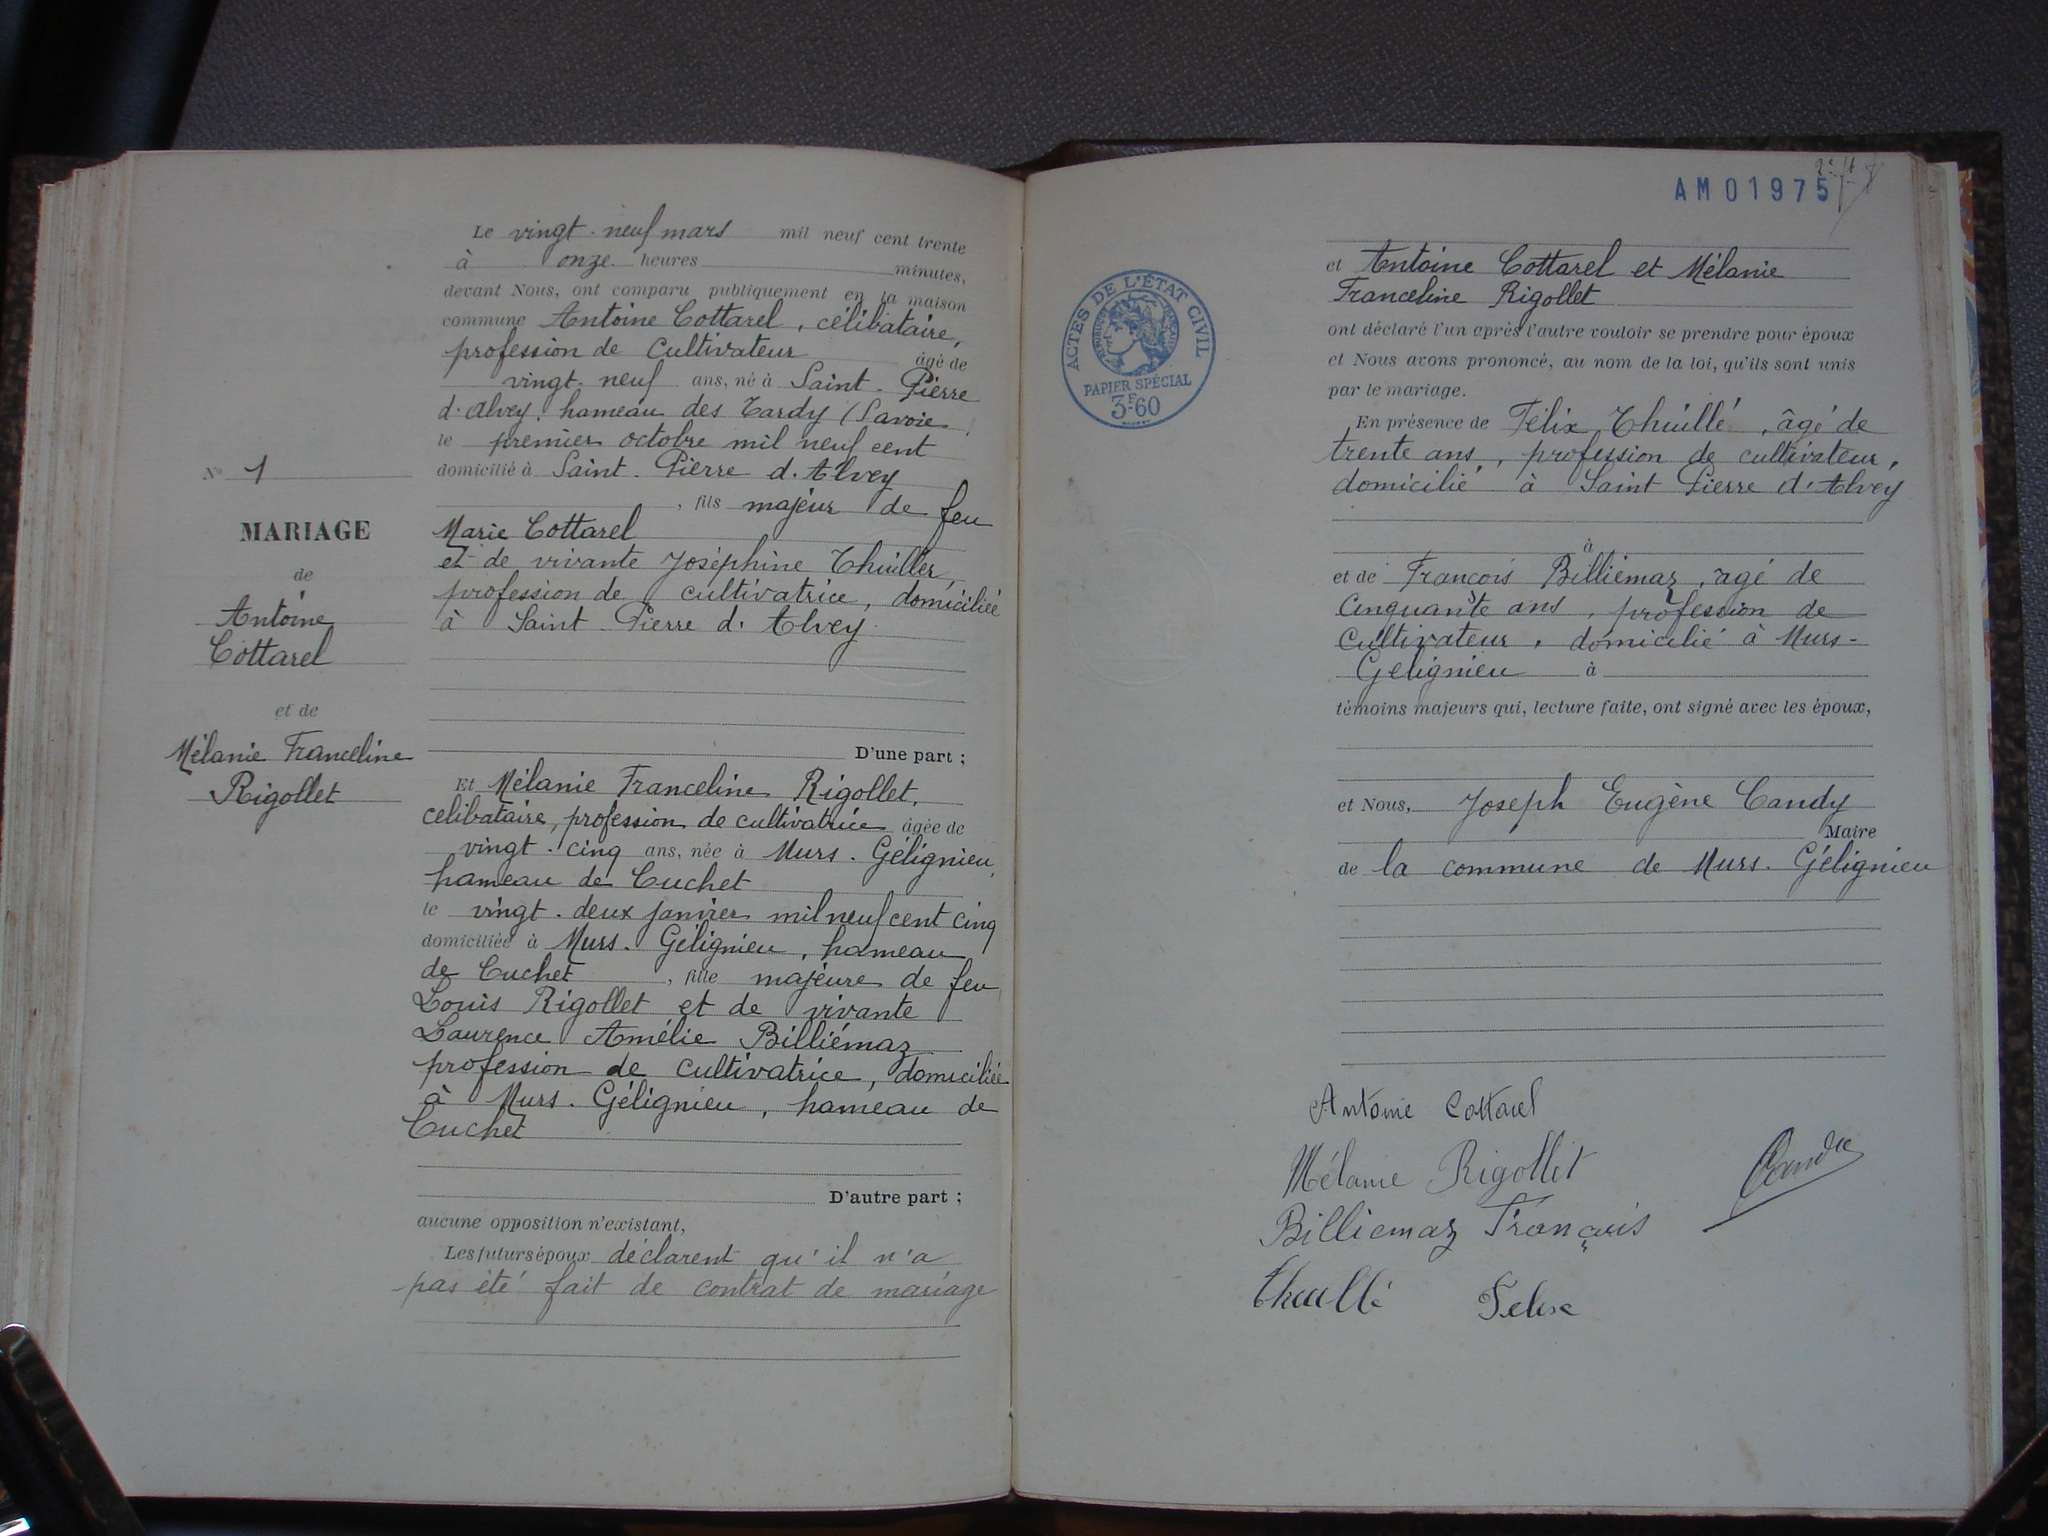 Le vingt-neuf mars mil neuf cent trente
à onze heures minutes,
devant Nous, ont comparu publiquement en la maison
commune Antoine Cottarel, célibataire,
profession de cultivateur âgé de
vingt-neuf ans, né à Saint-Pierre
d'Alvey, hameau des Tardy (Savoie)
le premier octobre mil neuf cent
domicilié à Saint-Pierre d'Alvey
, fils majeur de feu
Marie Cottarel
et de vivante Joséphine Thuiller,
profession de cultivatrice, domiciliée
à Saint-Pierre d'Alvey
D'une part ;
N° 1
MARIAGE
de
Antoine
Cottarel
et de
Mélanie Franceline
Rigollet
Et Mélanie Franceline Rigollet,
célibataire, profession de cultivatrice âgée de
vingt-cinq ans, née à Murs-Gélignieu,
hameau de Cuchet
le vingt-deux janvier mil neuf cent cinq
domiciliée à Murs-Gélignieu, hameau
de Cuchet, fille majeure de feu
Louis Rigollet et de vivante
Laurence Amélie Billiémaz
profession de cultivatrice, domiciliée
à Murs-Gélignieu, hameau de
Cuchet
D'autre part ;
aucune opposition n'existant,
Les futurs époux déclarent qu'il n'a
pas été fait de contrat de mariage
AM01975
ACTES DE L'ÉTAT CIVIL
PAPIER SPÉCIAL
3F.60
et Antoine Cottarel et Mélanie
Franceline Rigollet
ont déclaré l'un après l'autre vouloir se prendre pour époux
et Nous avons prononcé, au nom de la loi, qu'ils sont unis
par le mariage.
En présence de Félix Thuillé, âgé de
trente ans, profession de cultivateur,
domicilié à Saint Pierre d'Alvey
à
et de François Billiémaz, âgé de
cinquante ans, profession de
cultivateur, domicilié à Murs-
Gélignieu à
témoins majeurs qui, lecture faite, ont signé avec les époux,
et Nous, Joseph Eugène Candy
Maire
de la commune de Murs-Gélignieu
Antoine Cottarel
Mélanie Rigollet
Billiemaz François
Thuillé Felix